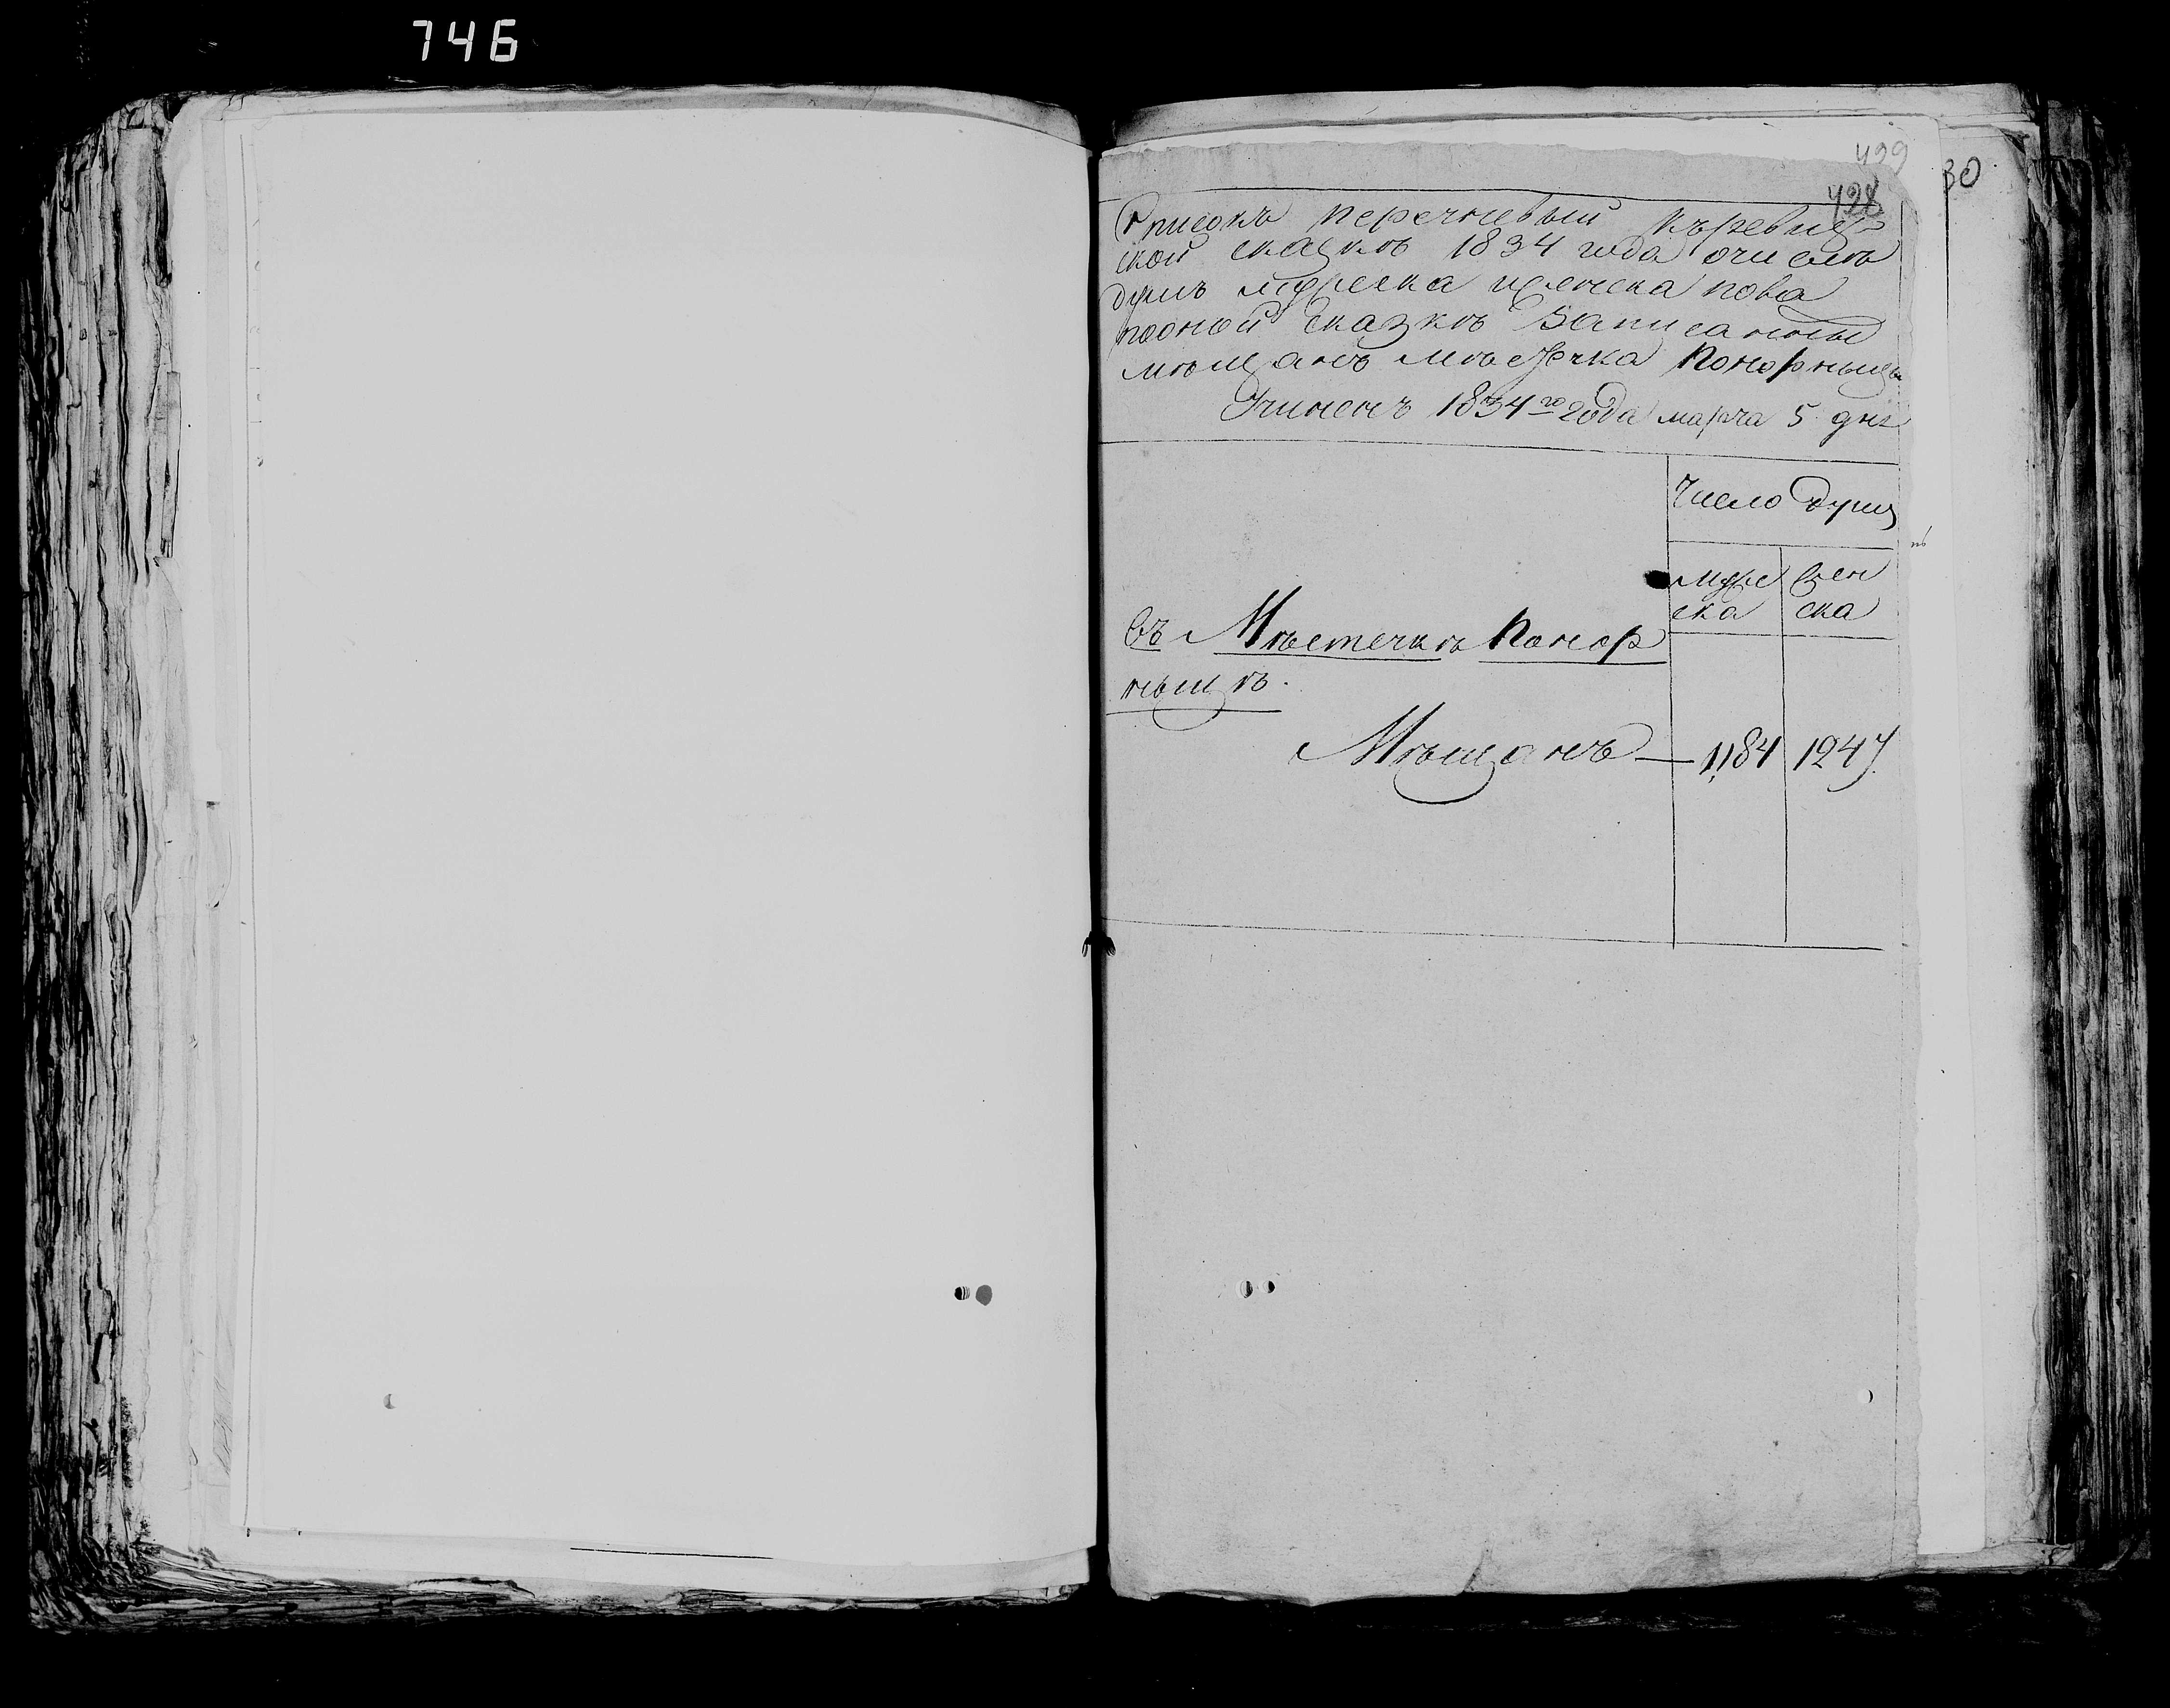 746
499
498
30
Списокъ перечневый къ ревиз-
ской сказкѣ 1834 года о числѣ
душъ мужеска и женска по
подной сказкѣ записанны
мѣщанъ мѣстечка Понорницы
Учиненъ 1834го года марта 5 дня
Число душъ
муже
ска
жен
ска
Въ Мѣстечкѣ Понор
ницѣ.
Мѣщанъ — 1184 1247